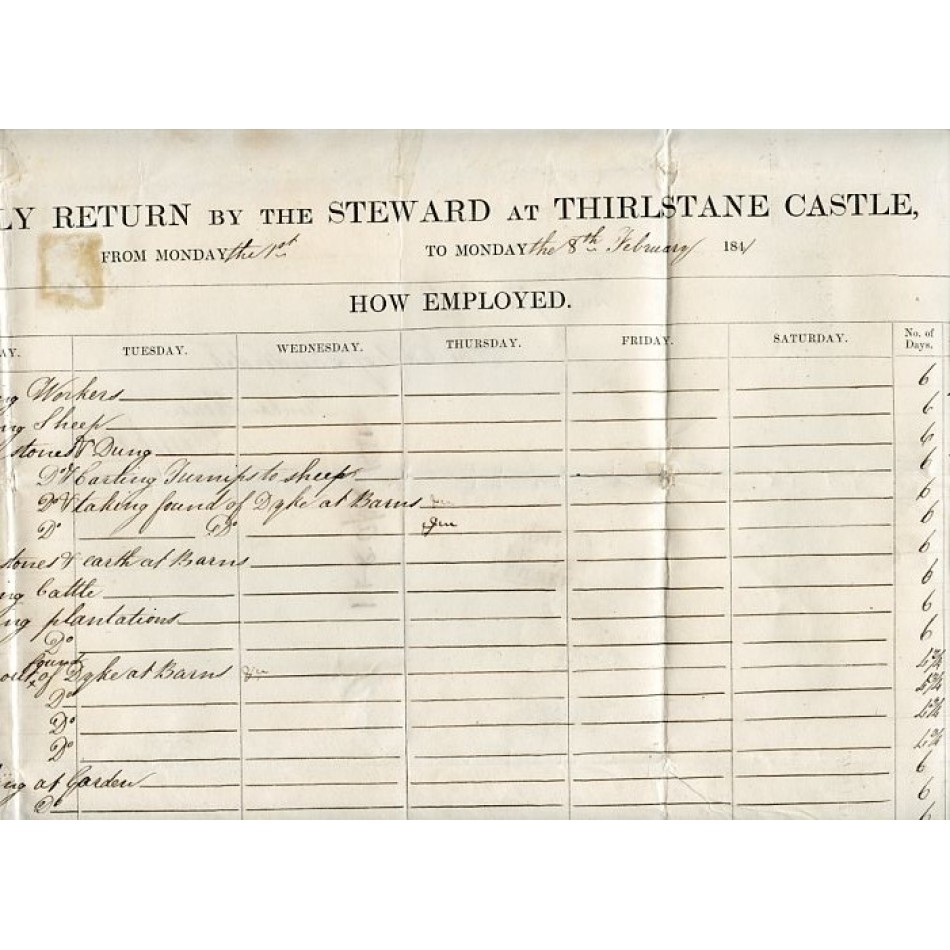 LY RETURN BY THE STEWARD AT THIRLSTANE CASTLE,
FROM MONDAY the 1st TO MONDAY the 8th February 1841
HOW EMPLOYED.
AY. TUESDAY. WEDNESDAY. THURSDAY. FRIDAY. SATURDAY. No. of Days.
ng Workers 6
ng Sheep 6
stones & Dung 6
Do & Carting Turnips to sheep 6
Do & taking found of Dyke at Barns 6
Do Do 6
stones & earth at Barns 6
ng Cattle 6
ng plantations 6
Do 6
found
out of Dyke at Barns
Do
Do
Do
ing at Garden 6
Do 6
6